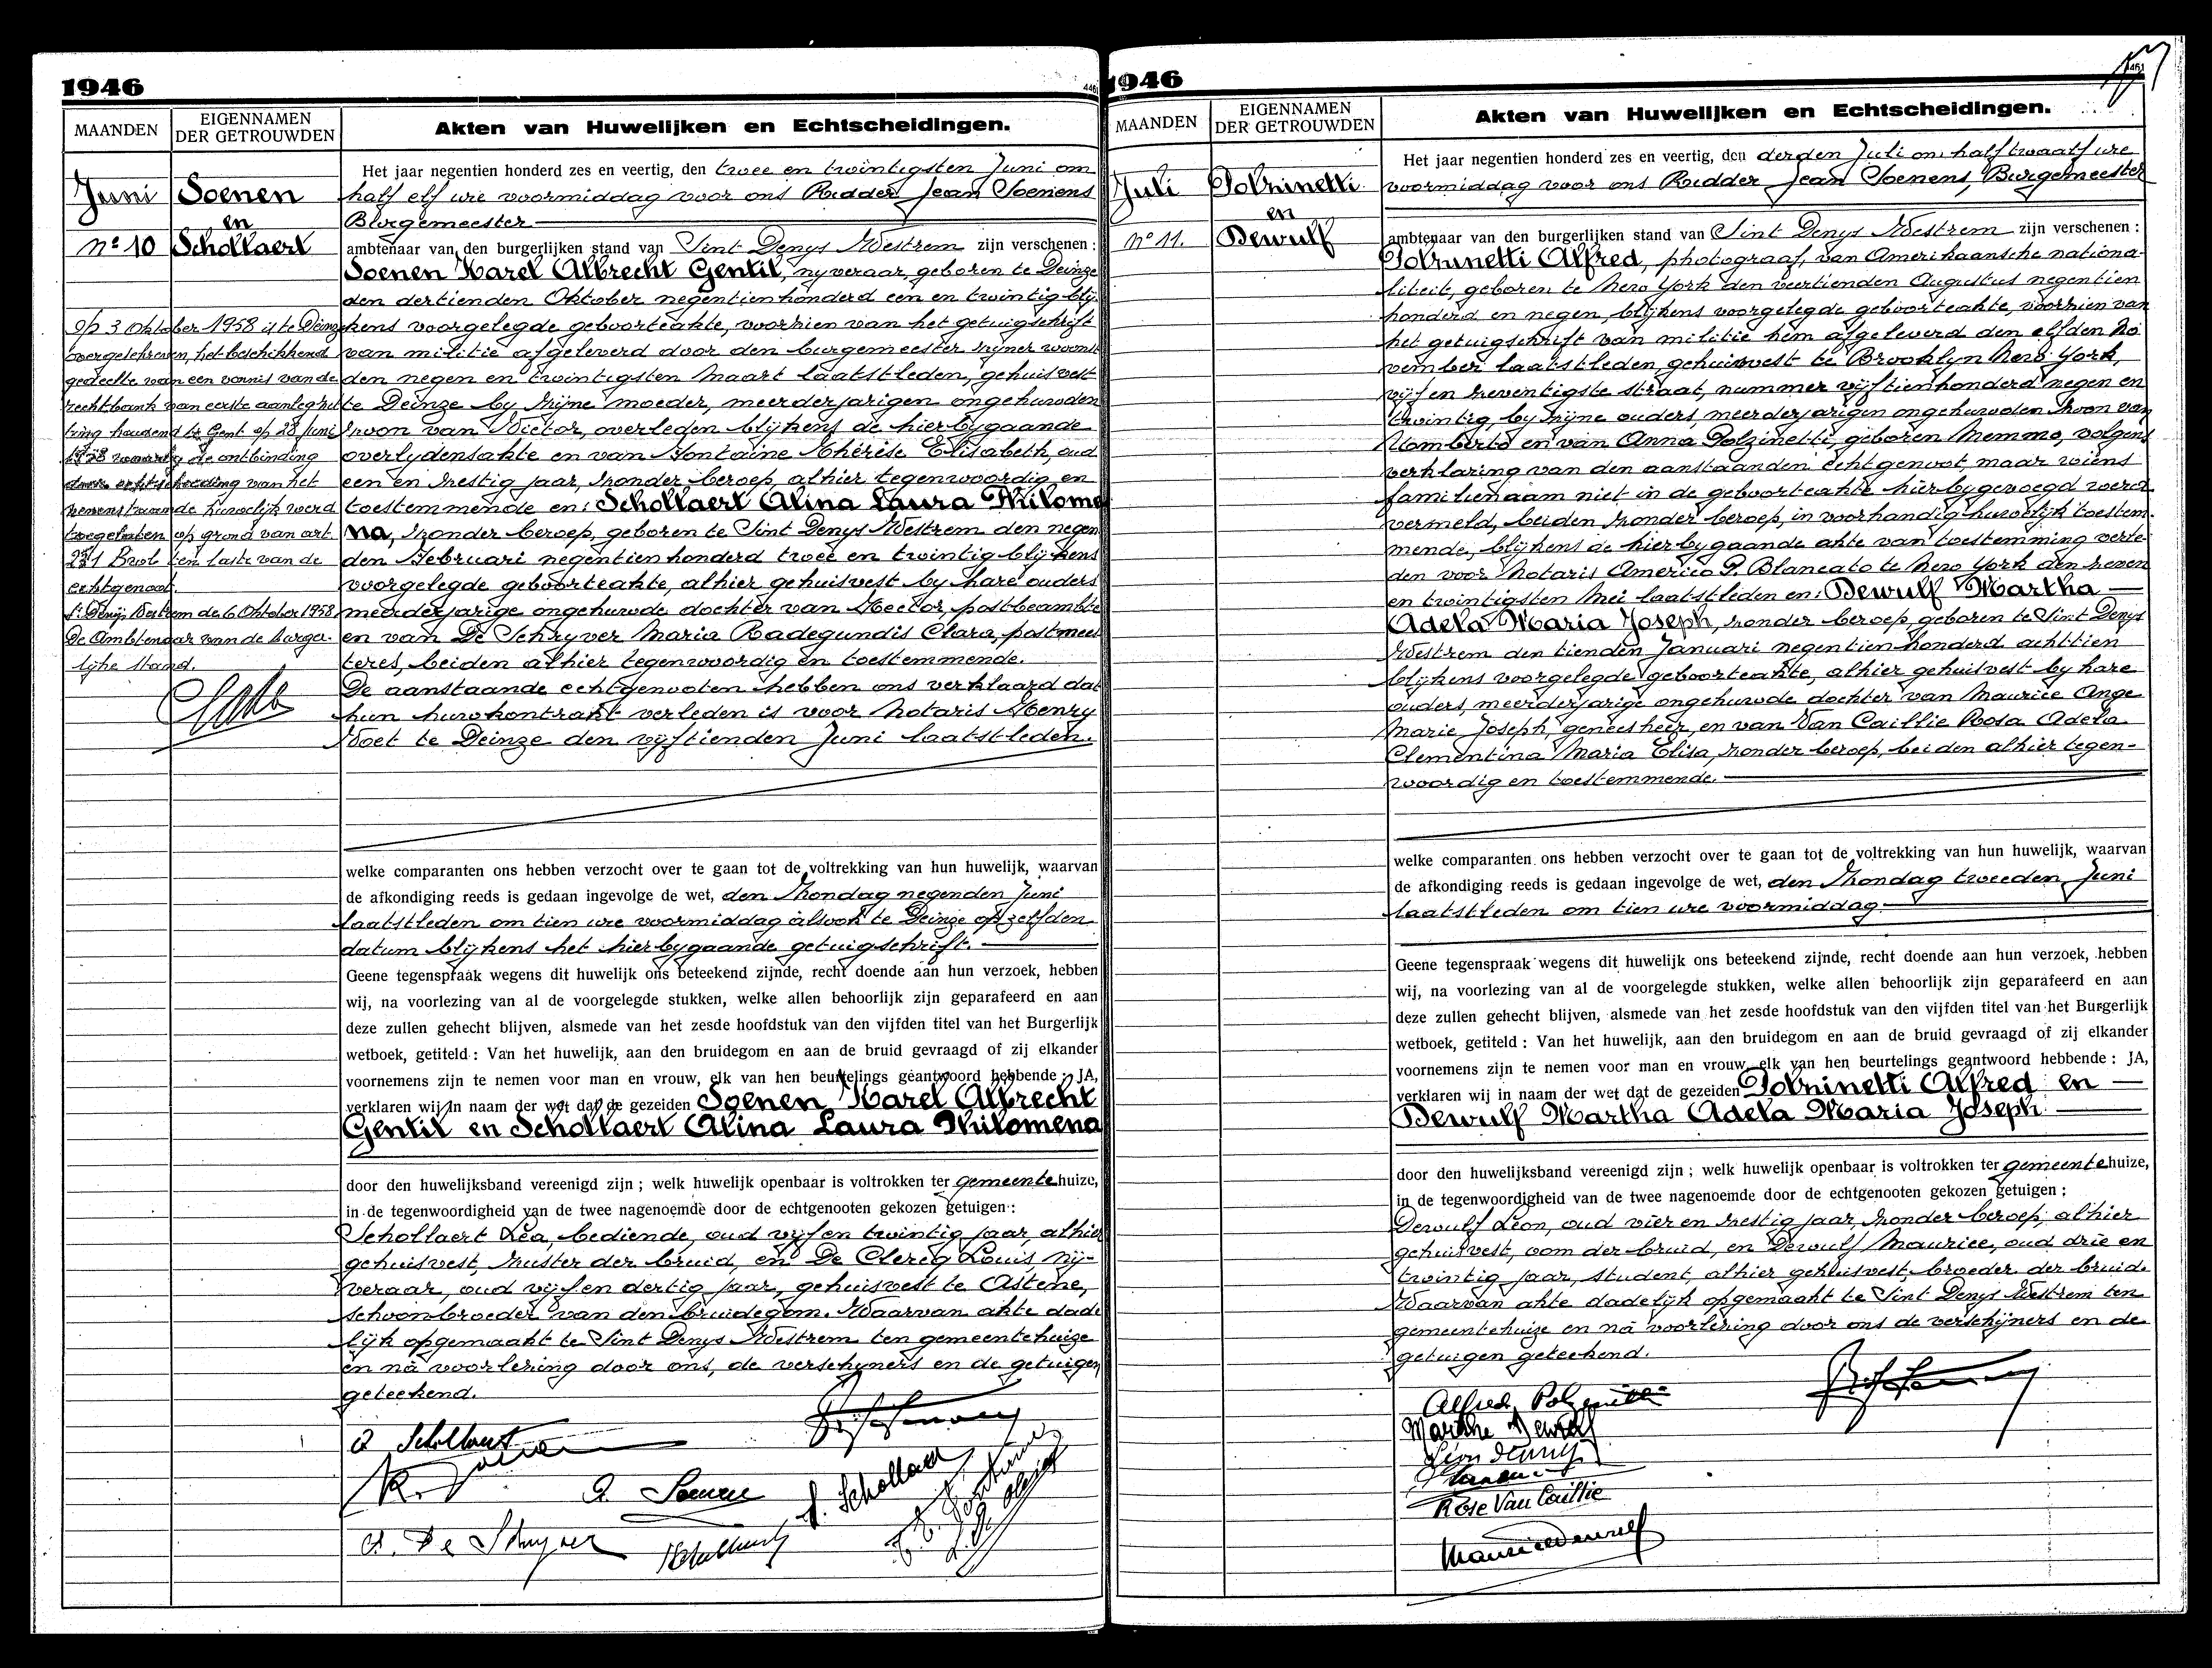 1946
MAANDEN
EIGENNAMEN
DER GETROUWDEN
Akten van Huwelijken en Echtscheidingen.
Juni
Soenen
en
Schollaert
No 10
Het jaar negentien honderd zes en veertig, den twee en twintigsten Juni om
half elf ure voormiddag voor ons Ridder Jean Soenens
Burgemeester
ambtenaar van den burgerlijken stand van Sint Denys Westrem zijn verschenen :
Soenen Karel Albrecht Gentil, nyveraar, geboren te Deinze
den dertienden Oktober negentienhonderd een en twintig bly
kens voorgelegde geboorteakte, voorzien van het getuigschrift
van militie afgeleverd door den burgemeester zyner woonst
den negen en twintigsten Maart laatstleden, gehuisvest
te Deinze by zyne moeder, meerderjarigen ongehuwden
zoon van Victor, overleden blykens de hierbygaande
overlydensakte en van Fontaine Thérèse Elisabeth, oud
een en zestig jaar, zonder beroep, alhier tegenwoordig en
toestemmende en: Schollaert Alina Laura Philome
na, zonder beroep, geboren te Sint Denys Westrem den negen
den Februari negentienhonderd twee en twintig blykens
voorgelegde geboorteakte, alhier gehuisvest by hare ouders
meerderjarige ongehuwde dochter van Hector, postbeambte
en van De Schryver Maria Radegundis Clara, postmees
teres, beiden alhier tegenwoordig en toestemmende.
De aanstaande echtgenooten hebben ons verklaard dat
hun huwkontrakt verleden is voor Notaris Henry
Voet te Deinze den vyftienden Juni laatstleden.
Op 3 Oktober 1958 is te Deinze
overgeschreven, het beschikkend
gedeelte van een vonnis van de
rechtbank van eerste aanleg zit
ting houdend te Gent op 28 Juni
1958 waarbij de ontbinding
door echtscheiding van het
nevenstaande huwelijk werd
toegelaten op grond van art
231 B.w. ten laste van de
echtgenoot.
St Denijs Westrem de 6 Oktober 1958
De Ambtenaar van de Burger-
lijke Stand.
welke comparanten ons hebben verzocht over te gaan tot de voltrekking van hun huwelijk, waarvan
de afkondiging reeds is gedaan ingevolge de wet, den Zondag negenden Juni
laatstleden om tien ure voormiddag alsook te Deinze op zelfden
datum blykens het hierbygaande getuigschrift.
Geene tegenspraak wegens dit huwelijk ons beteekend zijnde, recht doende aan hun verzoek, hebben
wij, na voorlezing van al de voorgelegde stukken, welke allen behoorlijk zijn geparafeerd en aan
deze zullen gehecht blijven, alsmede van het zesde hoofdstuk van den vijfden titel van het Burgerlijk
wetboek, getiteld : Van het huwelijk, aan den bruidegom en aan de bruid gevraagd of zij elkander
voornemens zijn te nemen voor man en vrouw, elk van hen beurtelings geantwoord hebbende : JA,
verklaren wij in naam der wet dat de gezeiden Soenen Karel Albrecht
Gentil en Schollaert Alina Laura Philomena
door den huwelijksband vereenigd zijn ; welk huwelijk openbaar is voltrokken ter gemeentehuize,
in de tegenwoordigheid van de twee nagenoemde door de echtgenooten gekozen getuigen :
Schollaert Léa, bediende, oud vyf en twintig jaar, alhier
gehuisvest, zuster der bruid, en De Clercq Louis, ny-
veraar, oud vyf en dertig jaar, gehuisvest te Astene,
schoonbroeder van den bruidegom. Waarvan akte dade
lyk opgemaakt te Sint Denys Westrem ten gemeentehuize
en na voorlezing door ons, de verschyners en de getuigen
geteekend.
A Schollaert
A. Soenen
Schollaert
A. De Schryver
1946
MAANDEN
EIGENNAMEN
DER GETROUWDEN
Akten van Huwelijken en Echtscheidingen.
Juli
Polzinetti
en
Dewulf
No 11.
Het jaar negentien honderd zes en veertig, den derden Juli om half twaalf ure
voormiddag voor ons Ridder Jean Soenens, Burgemeester
ambtenaar van den burgerlijken stand van Sint Denys Westrem zijn verschenen :
Polzinetti Alfred, photograaf, van Amerikaansche nationa
liteit, geboren te New York den veertienden Augustus negentien
honderd en negen, blykens voorgelegde geboorteakte, voorzien van
het getuigschrift van militie hem afgeleverd den elfden No
vember laatstleden, gehuisvest te Brooklyn New York,
vyf en zeventigste straat, nummer vyftienhonderd negen en
twintig, by zyne ouders, meerderjarigen ongehuwden zoon van
Romberto en van Anna Polzinetti, geboren Memmo, volgens
verklaring van den aanstaanden echtgenoot, maar wiens
familienaam niet in de geboorteakte hierbygevoegd werd
vermeld, beiden zonder beroep, in voorhandig huwelyk toestem-
mende, blykens de hierbygaande akte van toestemming verle-
den voor Notaris Americo P. Blancato te New York den zeven
en twintigsten Mei laatstleden en: Dewulf Martha
Adela Maria Joseph, zonder beroep, geboren te Sint Denys
Westrem den tienden Januari negentienhonderd achttien
blykens voorgelegde geboorteakte, alhier gehuisvest by hare
ouders, meerderjarige ongehuwde dochter van Maurice Ange
Marie Joseph, geneesheer, en van Van Caillie Rosa Adela
Clementina Maria Elisa, zonder beroep, beiden alhier tegen-
woordig en toestemmende.
welke comparanten ons hebben verzocht over te gaan tot de voltrekking van hun huwelijk, waarvan
de afkondiging reeds is gedaan ingevolge de wet, den Zondag tweeden Juni
laatstleden om tien ure voormiddag
Geene tegenspraak wegens dit huwelijk ons beteekend zijnde, recht doende aan hun verzoek, hebben
wij, na voorlezing van al de voorgelegde stukken, welke allen behoorlijk zijn geparafeerd en aan
deze zullen gehecht blijven, alsmede van het zesde hoofdstuk van den vijfden titel van het Burgerlijk
wetboek, getiteld : Van het huwelijk, aan den bruidegom en aan de bruid gevraagd of zij elkander
voornemens zijn te nemen voor man en vrouw, elk van hen beurtelings geantwoord hebbende : JA,
verklaren wij in naam der wet dat de gezeiden Polzinetti Alfred en
Dewulf Martha Adela Maria Joseph
door den huwelijksband vereenigd zijn ; welk huwelijk openbaar is voltrokken ter gemeentehuize,
in de tegenwoordigheid van de twee nagenoemde door de echtgenooten gekozen getuigen ;
Dewulf Léon, oud vier en zestig jaar, zonder beroep, alhier
gehuisvest, oom der bruid, en Dewulf Maurice, oud drie en
twintig jaar, student, alhier gehuisvest, broeder der bruid.
Waarvan akte dadelyk opgemaakt te Sint Denys Westrem ten
gemeentehuize en na voorlezing door ons de verschyners en de
getuigen geteekend.
Alfred Polzinetti
Marthe Dewulf
Léon Dewulf
Rose Van Caillie
Maurice Dewulf